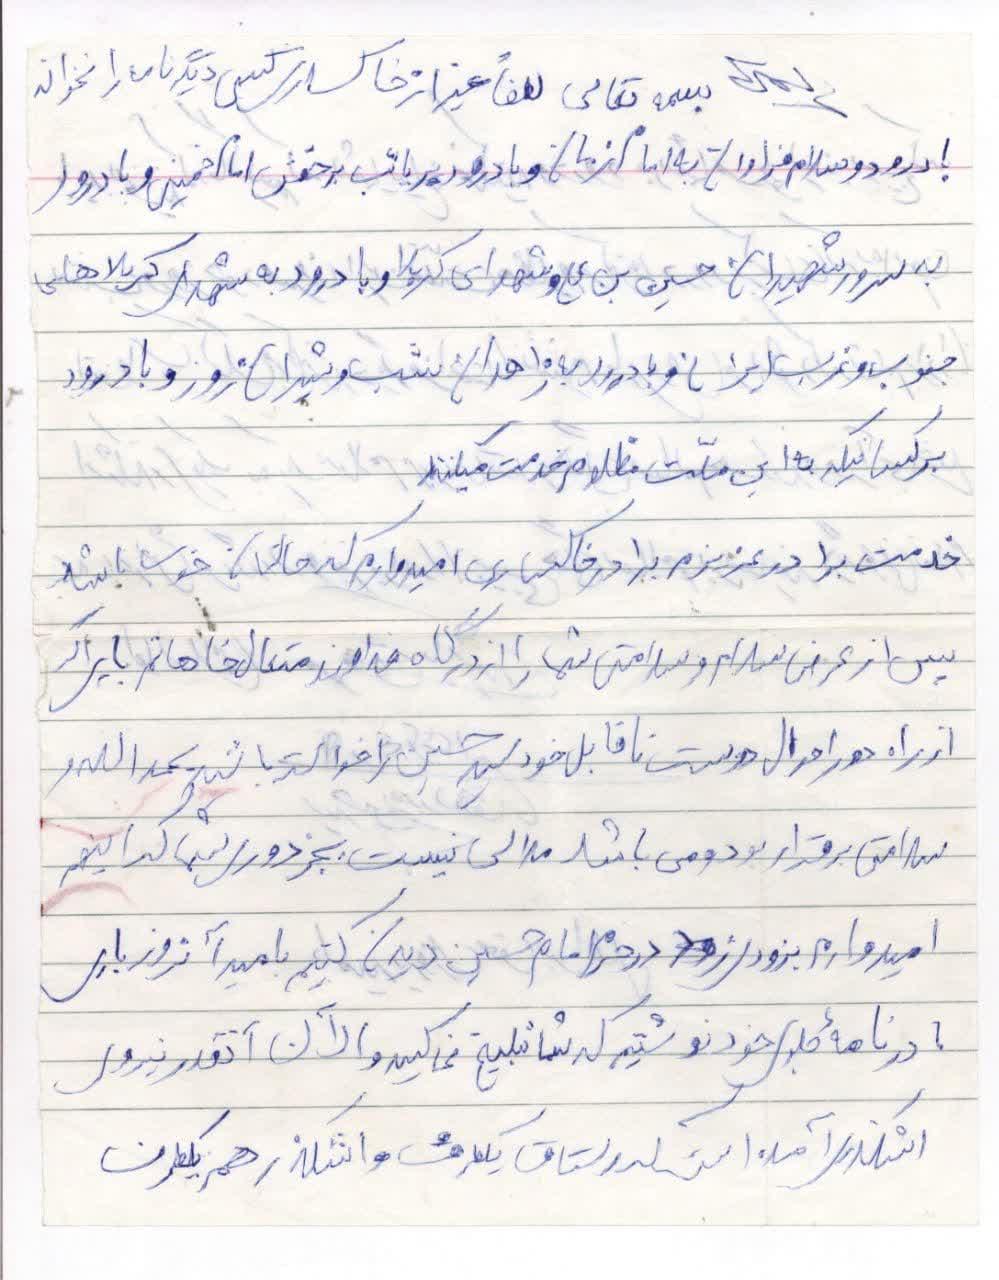 بسمه تعالی لطفاً غیر از خاکساری کسی دیگر نامه را نخواند
با درود و سلام فراوان به امام زمان و با درود بر نایب بر حقش امام خمینی و با درود
به سرور شهیدان حسین بن علی و شهدای کربلا و با درود به شهدای کربلاهای
جنوب و غرب ایران و با درود به زاهدان شب و شیران روز و با درود
بر کسانیکه به این ملّت مظلوم خدمت میکنند
خدمت برادر عزیزم برادر خاکساری امیدوارم که حالتان خوب باشد
پس از عرض سلام و سلامتی شما را از درگاه خداوند متعال خاهانم باری اگر
از راه دور احوال دوست ناقابل خود سید حسین را خواسته باشید بحمد الله و
سلامتی برقرار بوده و می باشد ملالی نیست بجز دوری شما که اینهم
امیدوارم بزودی زود در حرم امام حسین دیدن کنیم بامید آنروز باری
در نامهٔ قبلی خود نوشتیم که شما تبلیغ نمی کنید و الآن آنقدر نیروی
اشکذری آمده است که رستاق یکطرف و اشکذر هم یکطرف